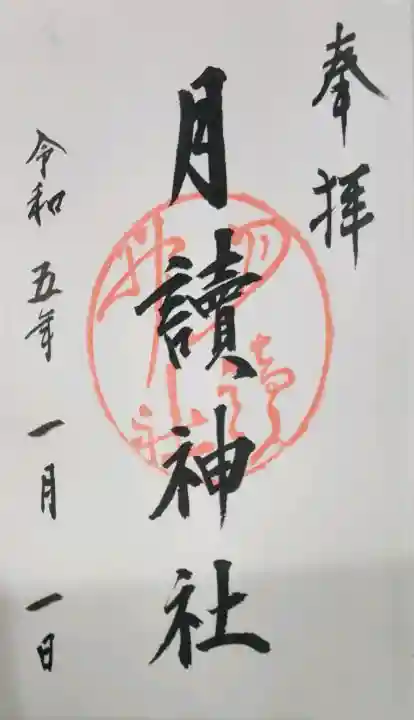 奉拝
月讀神社
令和五年一月一日